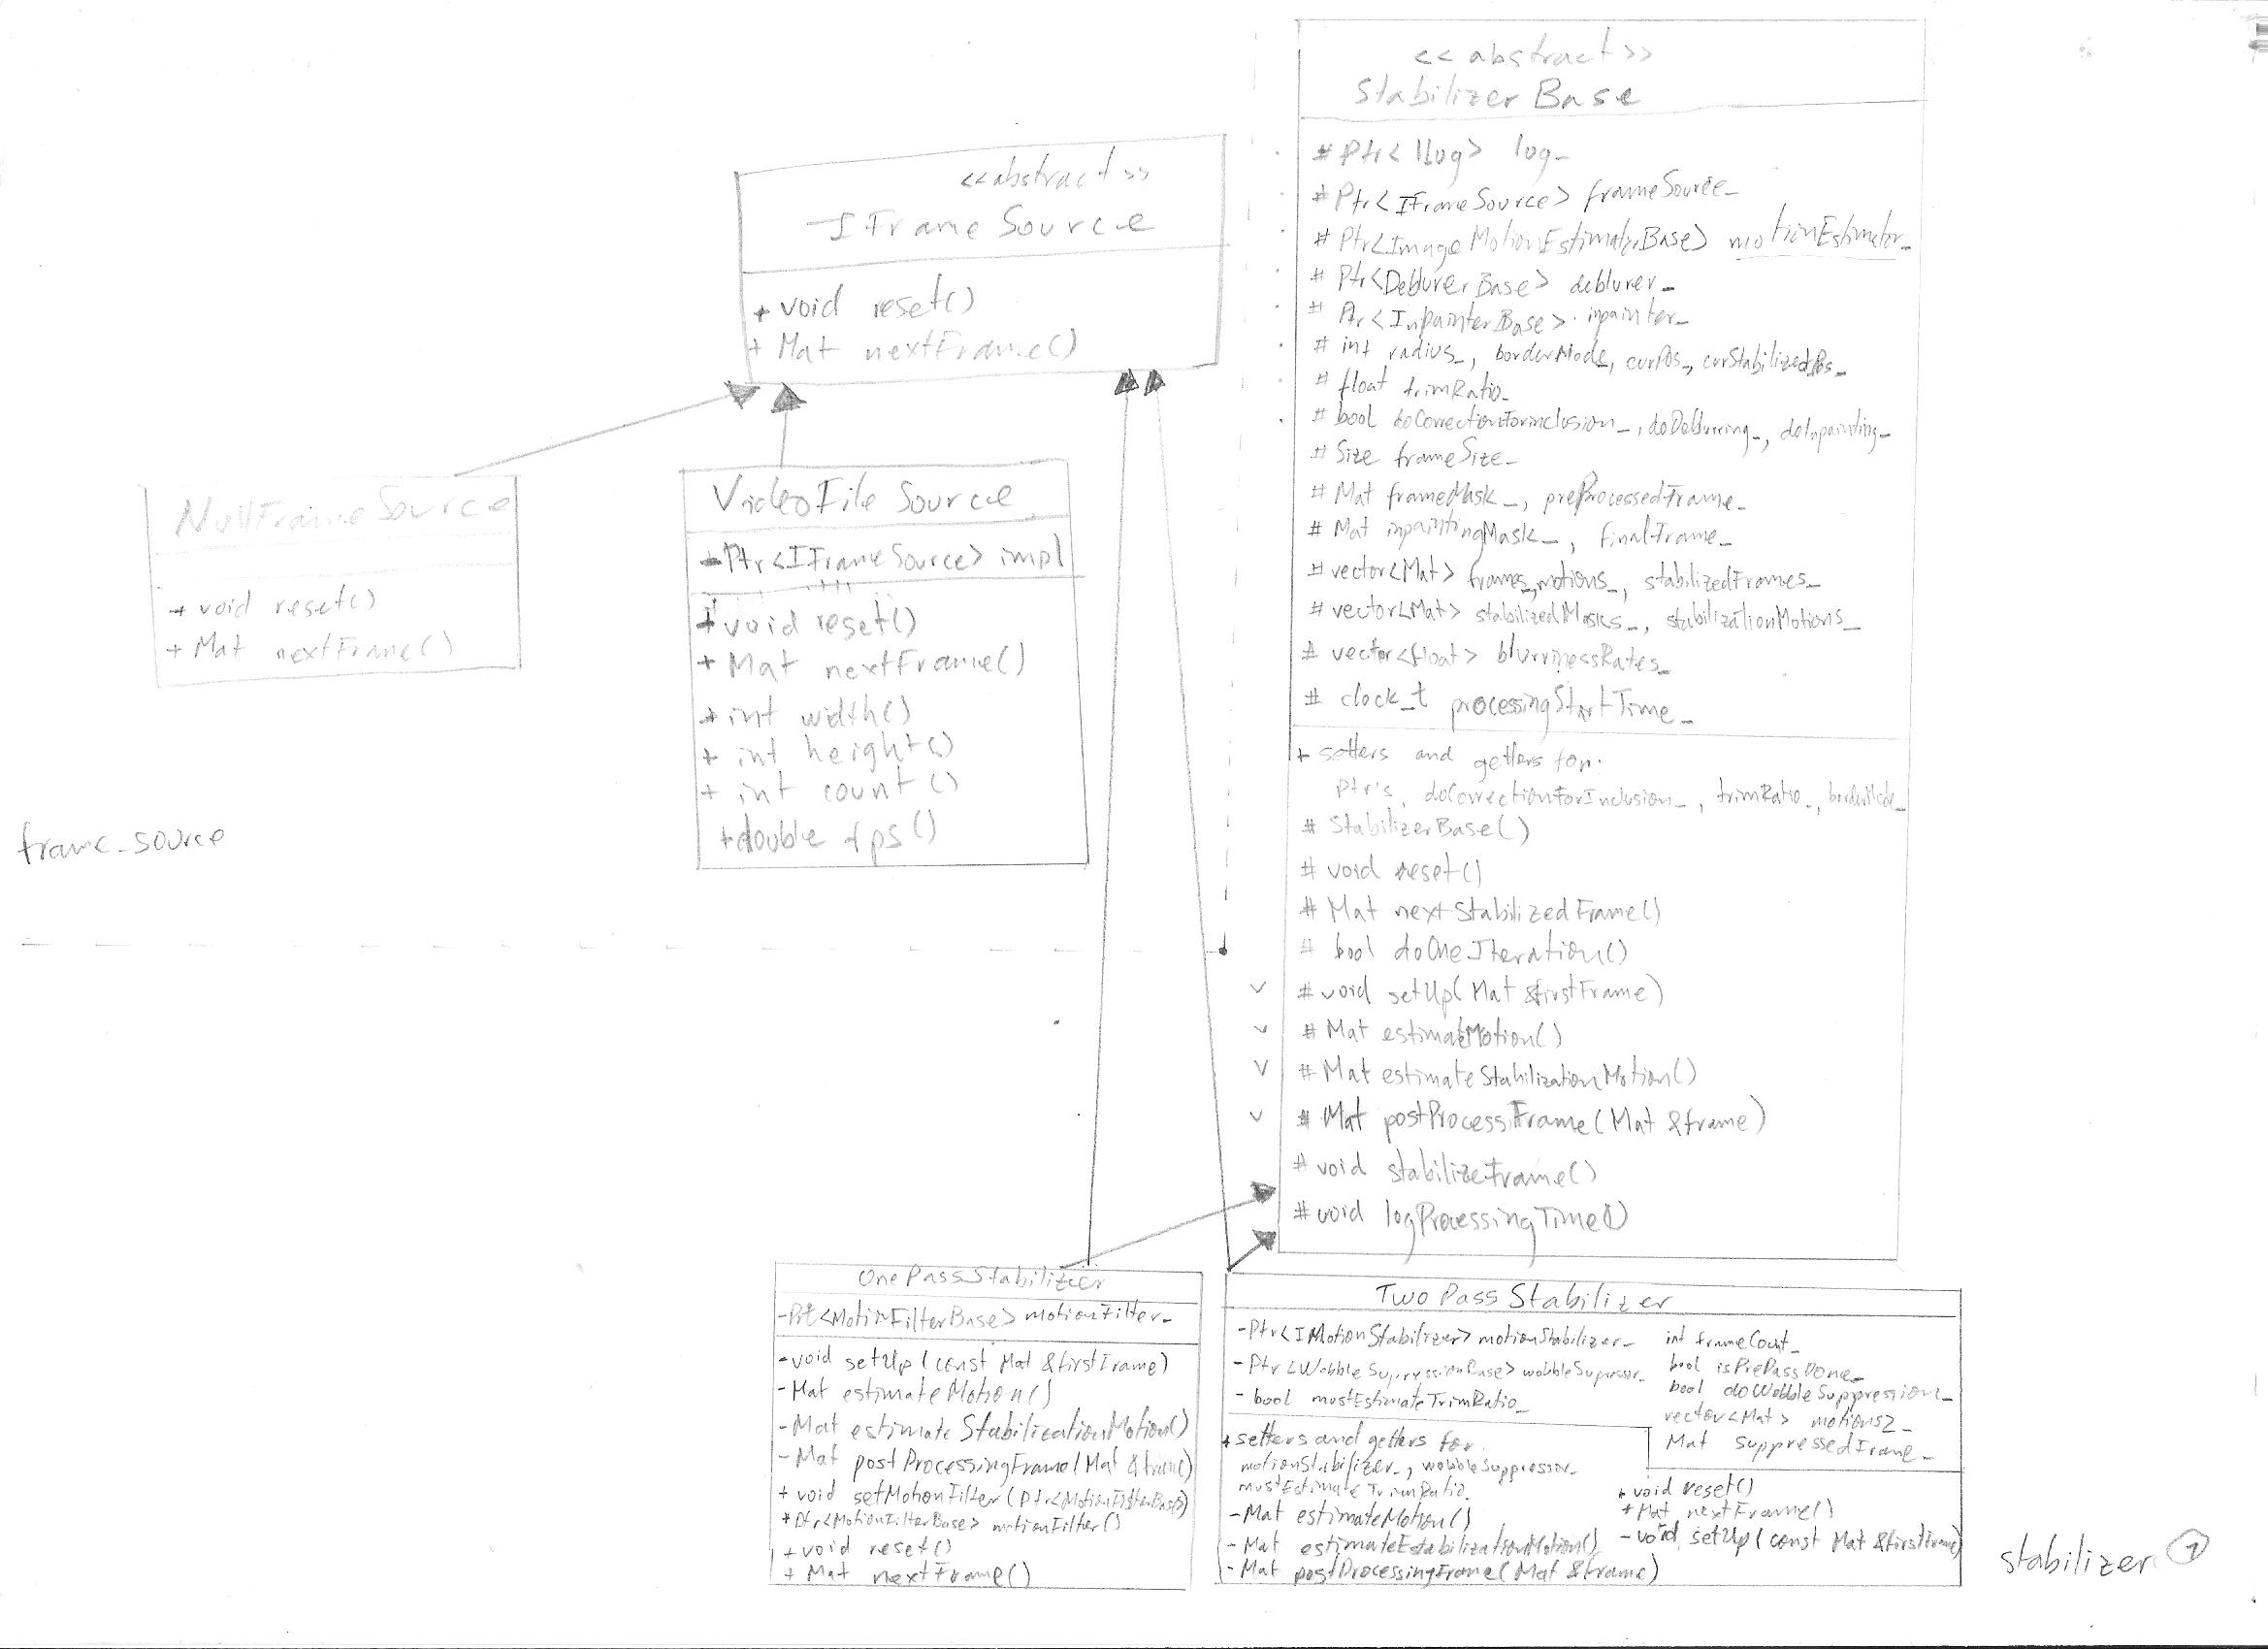 <<abstract>>
IFrameSource
+ void reset()
+ Mat nextFrame()
NullFrameSource
+ void reset()
+ Mat nextFrame()
VideoFileSource
-Ptr<IFrameSource> impl
+ void reset()
+ Mat nextFrame()
+ int width()
+ int height()
+ int count()
+double fps()
frame_source
<<abstract>>
StabilizerBase
# Ptr<ILog> log_
# Ptr<IFrameSource> frameSource_
# Ptr<ImageMotionEstimatorBase> motionEstimator_
# Ptr<DeblurerBase> deblurer_
# Ptr<InpainterBase> inpainter_
# int radius_, borderMode, curPos_, curStabilizedPos_
# float trimRatio_
# bool doCorrectionForinclusion_, doDeblurring_, doInpainting_
# Size frameSize_
# Mat frameMask_, preProcessedFrame_
# Mat inpaintingMask_, finalFrame_
# vector<Mat> frames_, motions_, stabilizedFrames_
# vector<Mat> stabilizedMasks_, stabilizationMotions_
# vector<float> blurrinessRates_
# clock_t processingStartTime_
+ setters and getters for:
Ptr's, doCorrectionForInclusion_, trimRatio_, borderMode_
# StabilizerBase()
# void reset()
# Mat nextStabilizedFrame()
# bool doOneIteration()
v # void setUp(Mat &firstFrame)
v # Mat estimateMotion()
v # Mat estimateStabilizationMotion()
v # Mat postProcessFrame(Mat &frame)
# void stabilizeFrame()
# void logProcessingTime()
OnePassStabilizer
-Ptr<MotionFilterBase> motionFilter_
-void setUp(const Mat &firstFrame)
-Mat estimateMotion()
-Mat estimateStabilizationMotion()
-Mat postProcessingFrame(Mat &frame)
+ void setMotionFilter(Ptr<MotionFilterBase>)
+Ptr<MotionFilterBase> motionFilter()
+ void reset()
+ Mat nextFrame()
TwoPassStabilizer
-Ptr<IMotionStabilizer> motionStabilizer_
-Ptr<WobbleSuppressionBase> wobbleSupressor_
- bool mustEstimateTrimRatio_
int frameCount_
bool isPrePassDone_
bool doWobbleSuppression_
vector<Mat> motions2_
Mat suppressedFrame_
+setters and getters for:
motionStabilizer_, wobbleSuppressor_
mustEstimateTrimRatio_
-Mat estimateMotion()
- Mat estimateEstabilizationMotion()
- Mat postProcessingFrame(Mat &frame)
+ void reset()
+ Mat nextFrame()
- void setUp(const Mat &firstFrame)
stabilizer 1